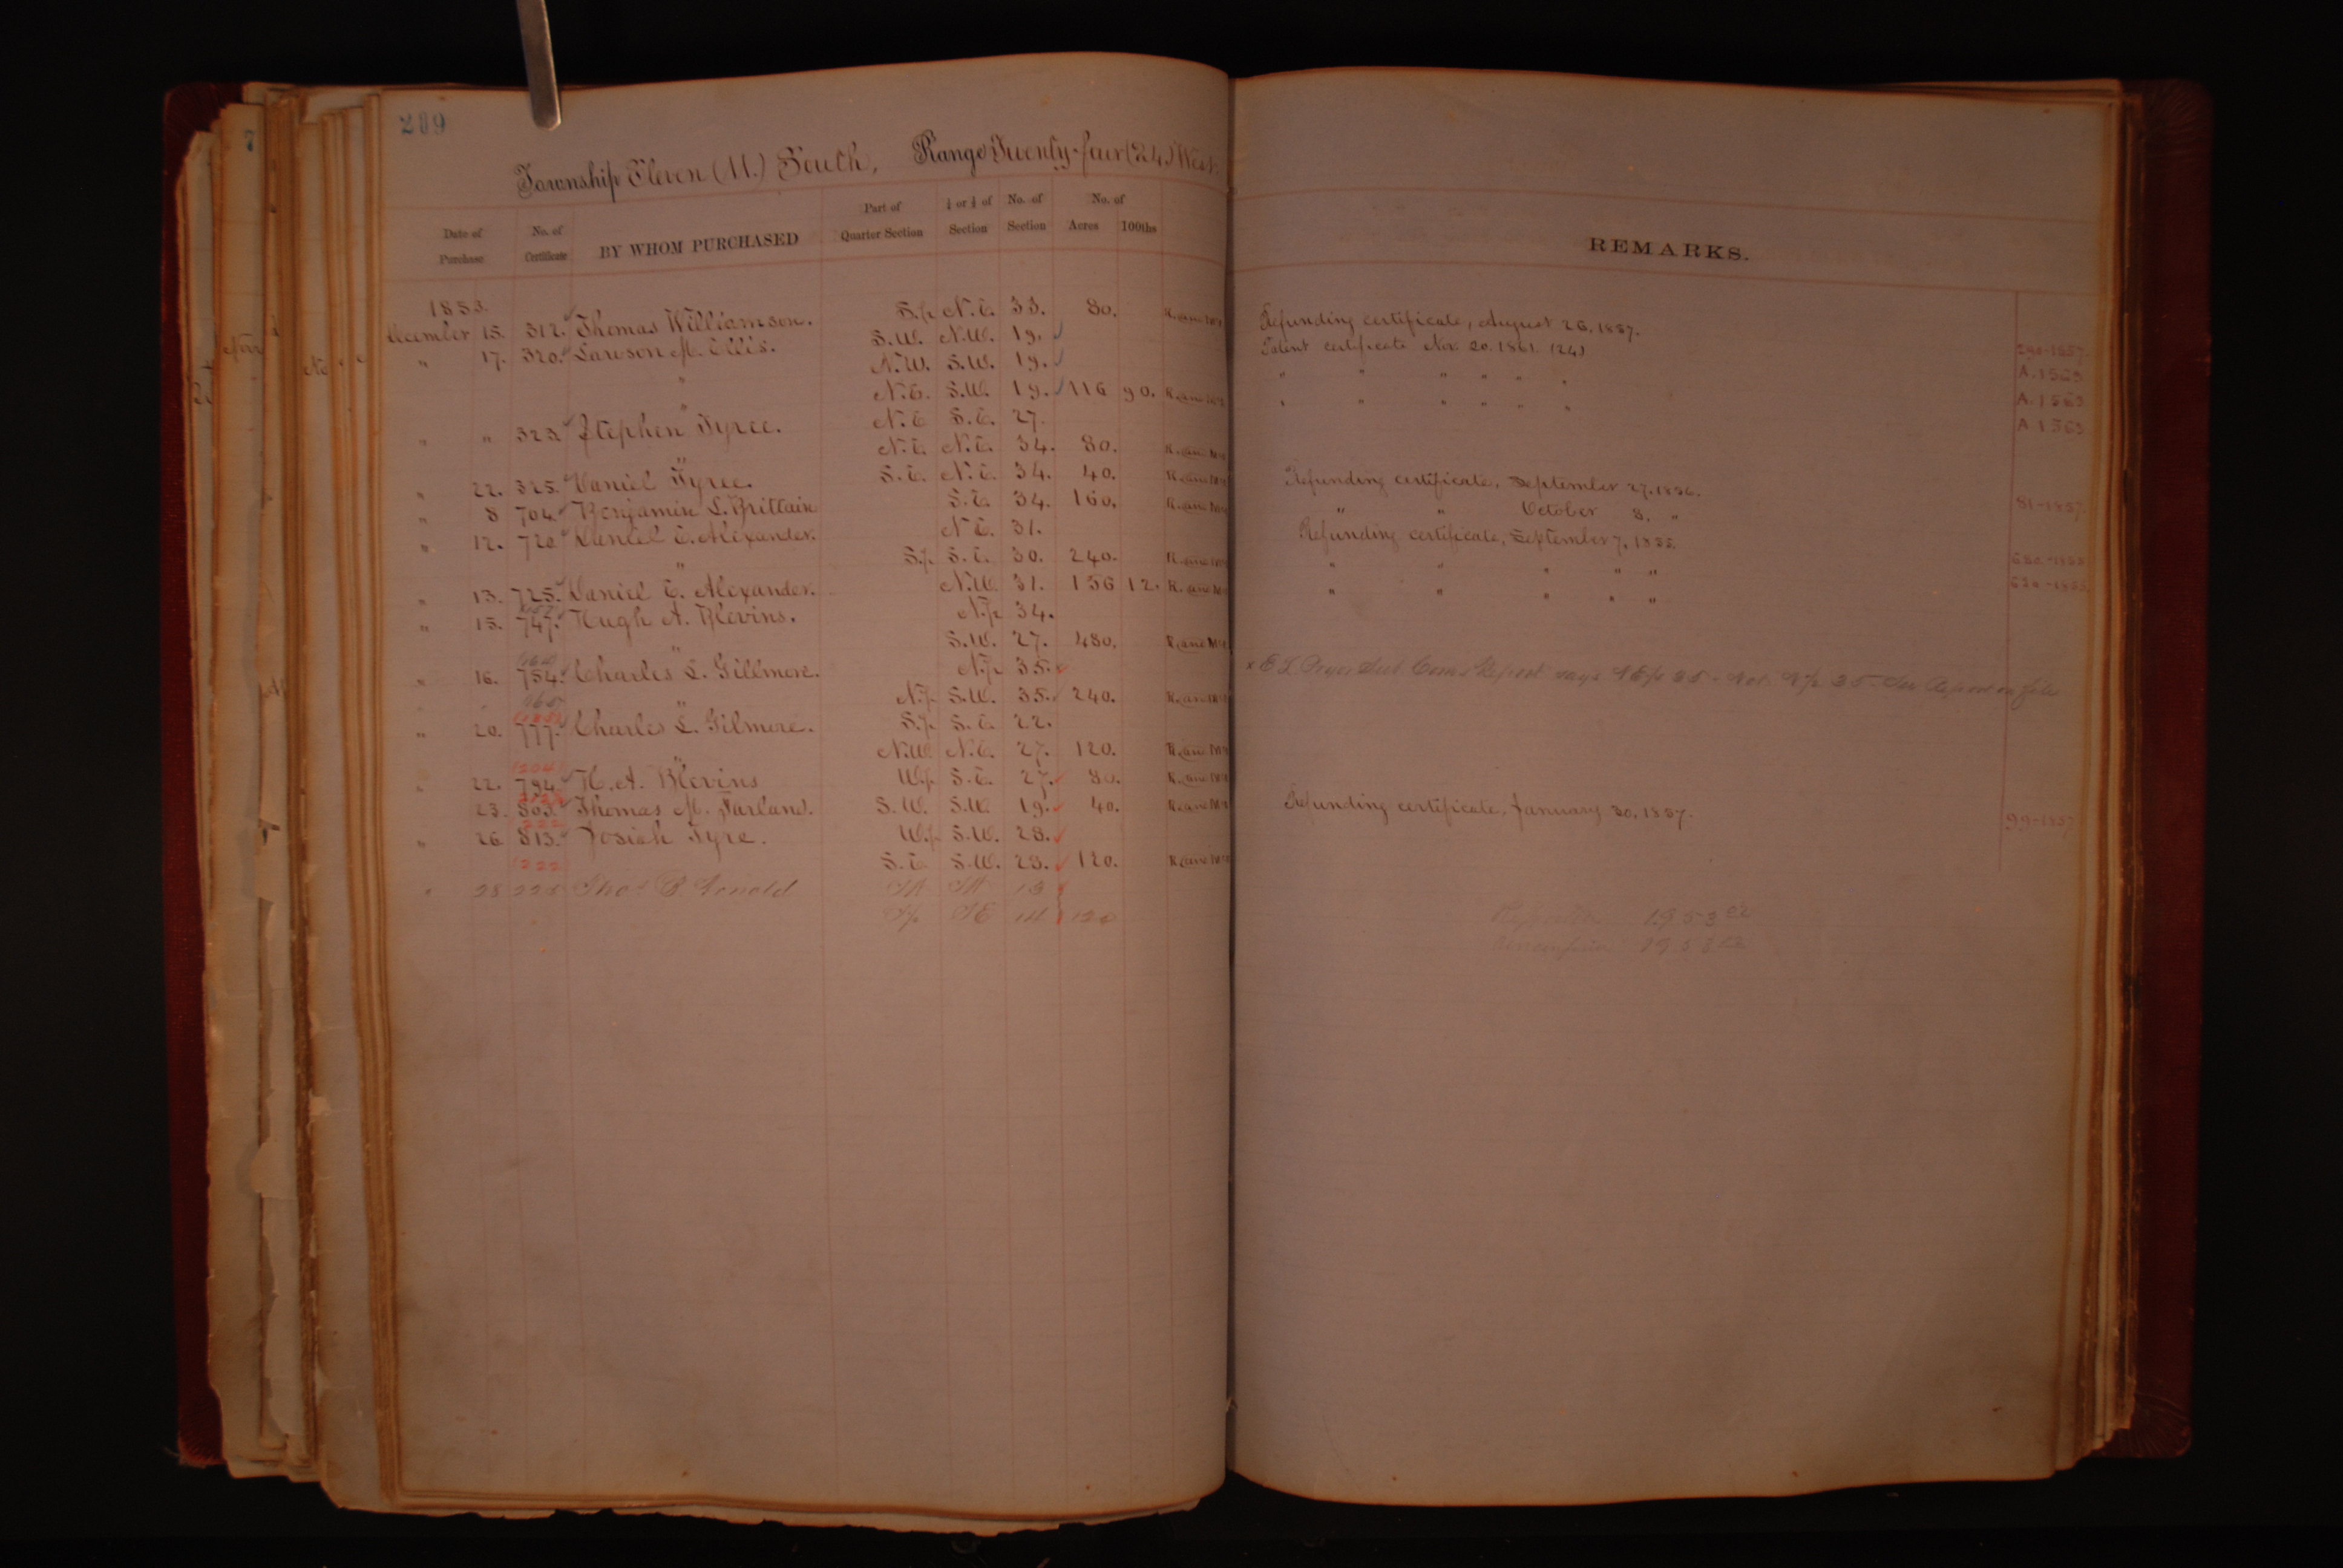 209
7
Township Eleven (11.) South, Range Twenty-four (24.) West
Date of Purchase No. of Certificate BY WHOM PURCHASED Part of Quarter Section ½ or ¼ of Section No. of Section No. of Acres 100ths
REMARKS.
1853.
December 15. 312. Thomas Williamson. S.½ N.E. 33. 80. Refunding certificate, August 26, 1857.
" 17. 320. Lawson M. Ellis. S.W. N.W. 19. Patent certificate Nov. 20. 1861. (24)
" N.W. S.W. 19. " " " " " " A.1563
N.E. S.W. 19. 116 90. " " " " " " A.1563
" " 323. Stephen Tyree. N.E. S.E. 27. A 1563
" N.E. N.E. 34. 80.
" 22. 325. Daniel Tyree. S.E. N.E. 34. 40. Refunding certificate, September 27, 1856.
" 8 704. Benjamin L. Brittain S.E. 34. 160. " " October 8, " 81-1857.
" 12. 720. Daniel E. Alexander. N.E. 31. Refunding certificate, September 7, 1855.
" S.½ S.E. 30. 240. " " " " "
" 13. 725. Daniel E. Alexander. N.W. 31. 156 12. " " " " "
" 15. 747. Hugh A. Blevins. N.½ 34.
" S.W. 27. 480.
" 16. 754. Charles L. Gillmore. N.½ 35. x Report says
" N.½ S.W. 35. 240.
" 20. 777. Charles L. Gilmore. S.½ S.E. 22.
" N.W. N.E. 27. 120.
" 22. 794. H. A. Blevins W.½ S.E. 27. 80.
23. 803. Thomas M. Farland. S.W. S.W. 19. 40. Refunding certificate, January 30, 1857. 99-1857
" 26 813. Josiah Tyre. W.½ S.W. 28.
S.E. S.W. 28. 120.
" 28 228 Thos B Arnold 13
S½ SE 14 120
1953
1953